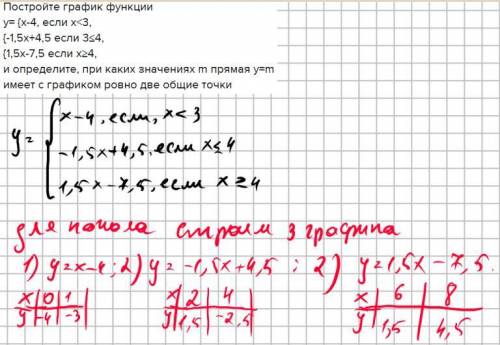 Постройте график функции
y= {x-4, если x<3,
{-1,5x+4,5 если 3≤4,
{1,5x-7,5 если x≥4,
и определите, при каких значениях m прямая y=m
имеет с графиком ровно две общие точки
x-4, если, x<3
y= { -1,5x+4,5, если x≤4
1,5x-7,5, если x≥4
для начола строим 3 графика
1) y=x-4; 2) y= -1,5x+4,5 ; 2) y=1,5x-7,5.
x 0 1 x 2 4 x 6 8
y -4 -3 y 1,5 -2,5 y 1,5 4,5